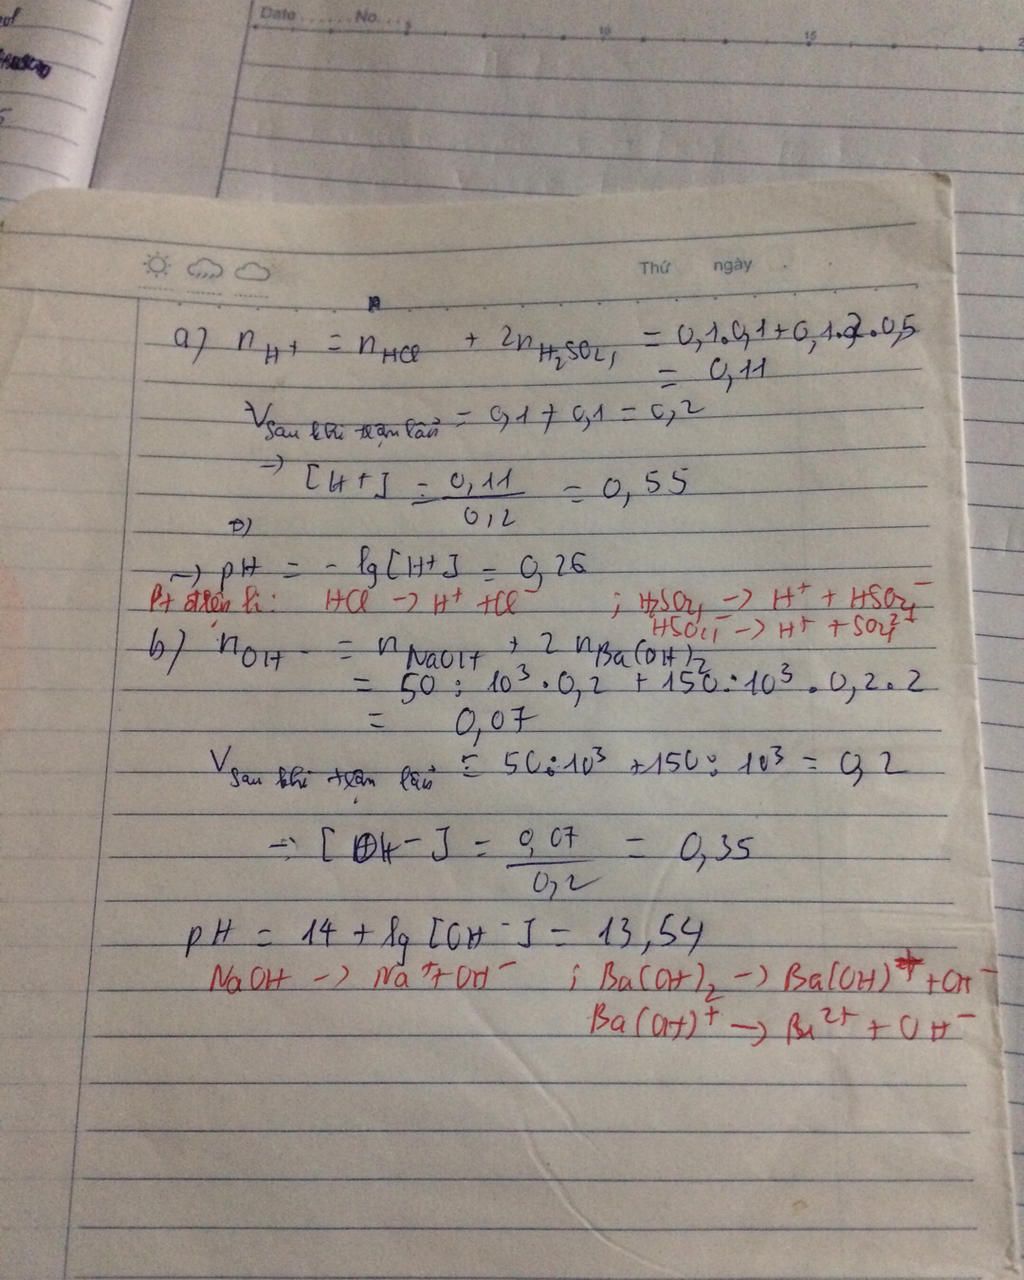 Date ...... No. ...
5 10 15 2
Thứ ngày
a) n_H+ = n_HCl + 2n_H₂SO₄ = 0,1.0,1+0,1.2.0,5
= 0,11
V_sau khi trộn lẫn = 0,1 + 0,1 = 0,2
→ [H+] = 0,11/0,2 = 0,55
→ pH = - lg[H+] = 0,26
Pt điện li: HCl → H⁺ + Cl⁻ ; H₂SO₄ → H⁺ + HSO₄⁻
HSO₄⁻ → H⁺ + SO₄²⁻
b) n_OH- = n_NaOH + 2 n_Ba(OH)₂
= 50 : 10³ . 0,2 + 150 : 10³ . 0,2 . 2
= 0,07
V_sau khi trộn lẫn = 50:10³ + 150 : 10³ = 0,2
→ [OH-] = 0,07/0,2 = 0,35
pH = 14 + lg [OH⁻] = 13,54
NaOH → Na⁺ + OH⁻ ; Ba(OH)₂ → Ba(OH)⁺ + OH⁻
Ba(OH)⁺ → Ba²⁺ + OH⁻